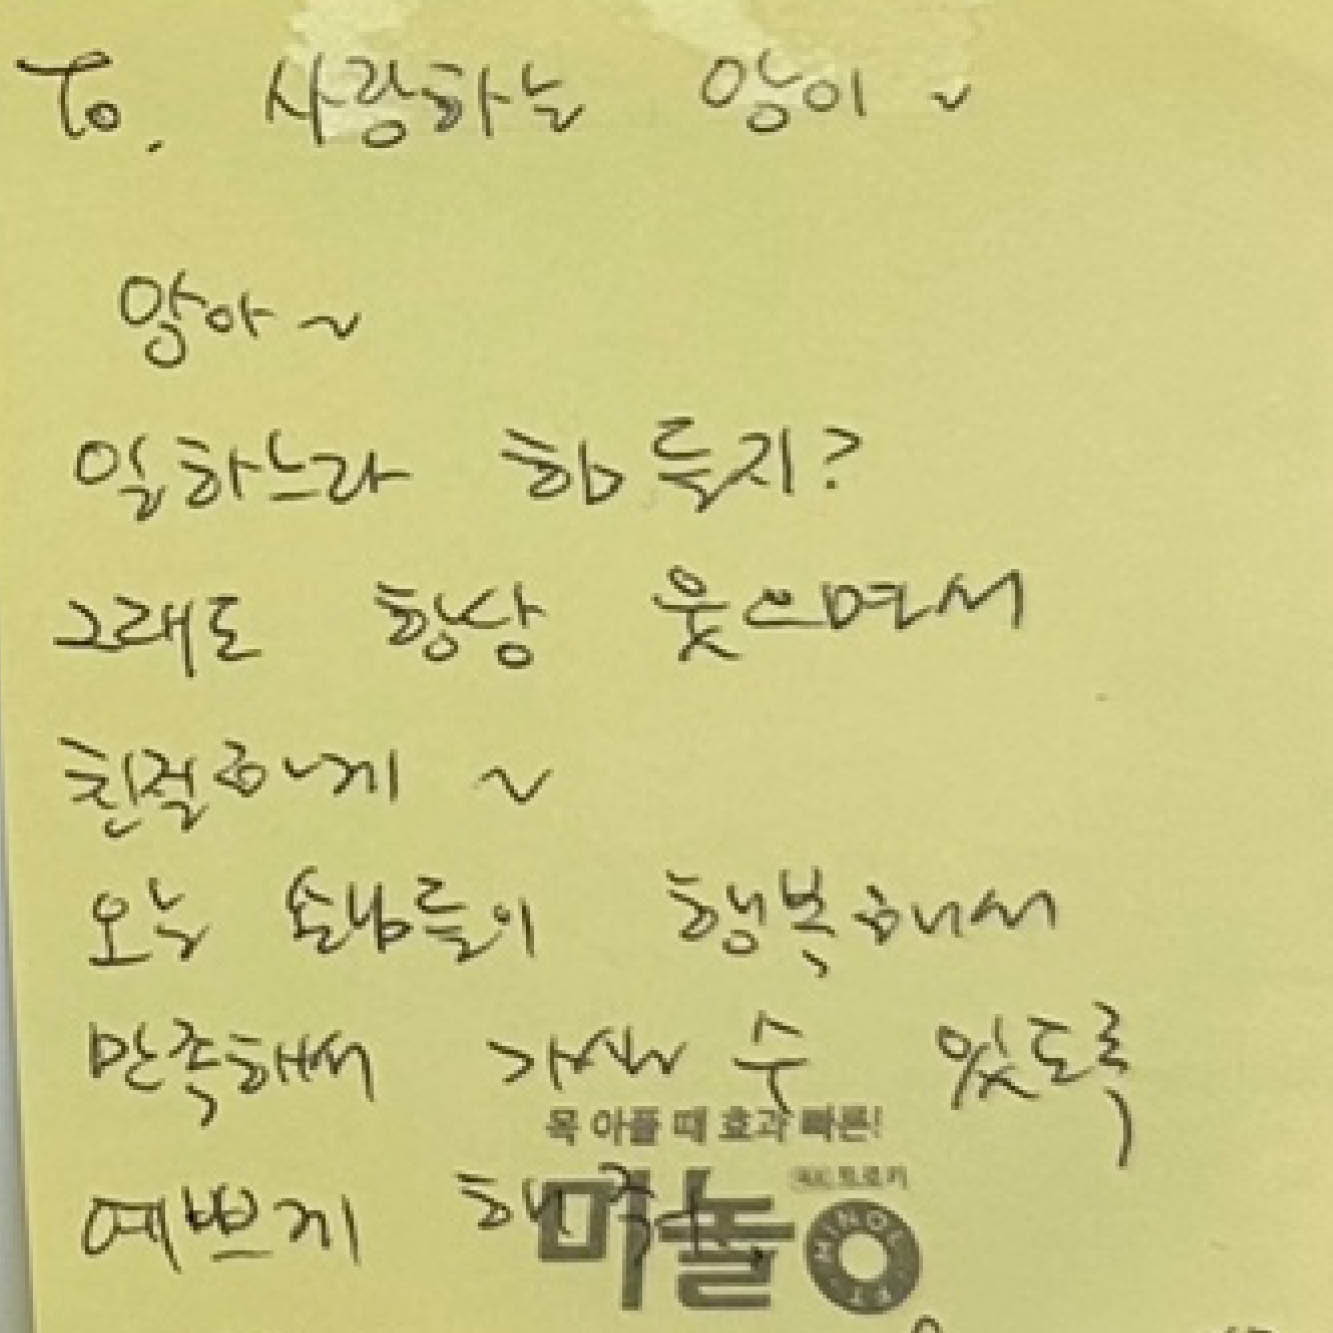 To. 사랑하는 앙이~
앙아~
일하느라 힘들지?
그래도 항상 웃으면서
친절하게~
오늘 손님들이 행복해서
만족해서 가실 수 있도록
목 아플 때 효과 빠른!
예쁘게 해줘.
미놀
MINOL